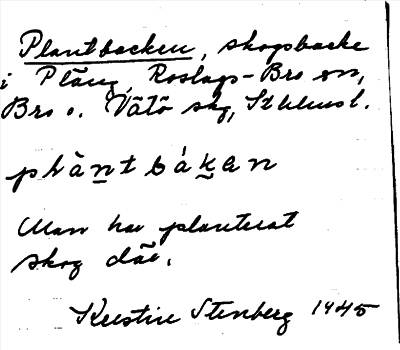 Plantbacken, skogsbacke
i Pläng, Roslags-Bro sn,
Bro o. Vätö skg, Sthlmsl.
plàntbákan
Man har planterat
skog där.
Kerstin Stenberg 1945